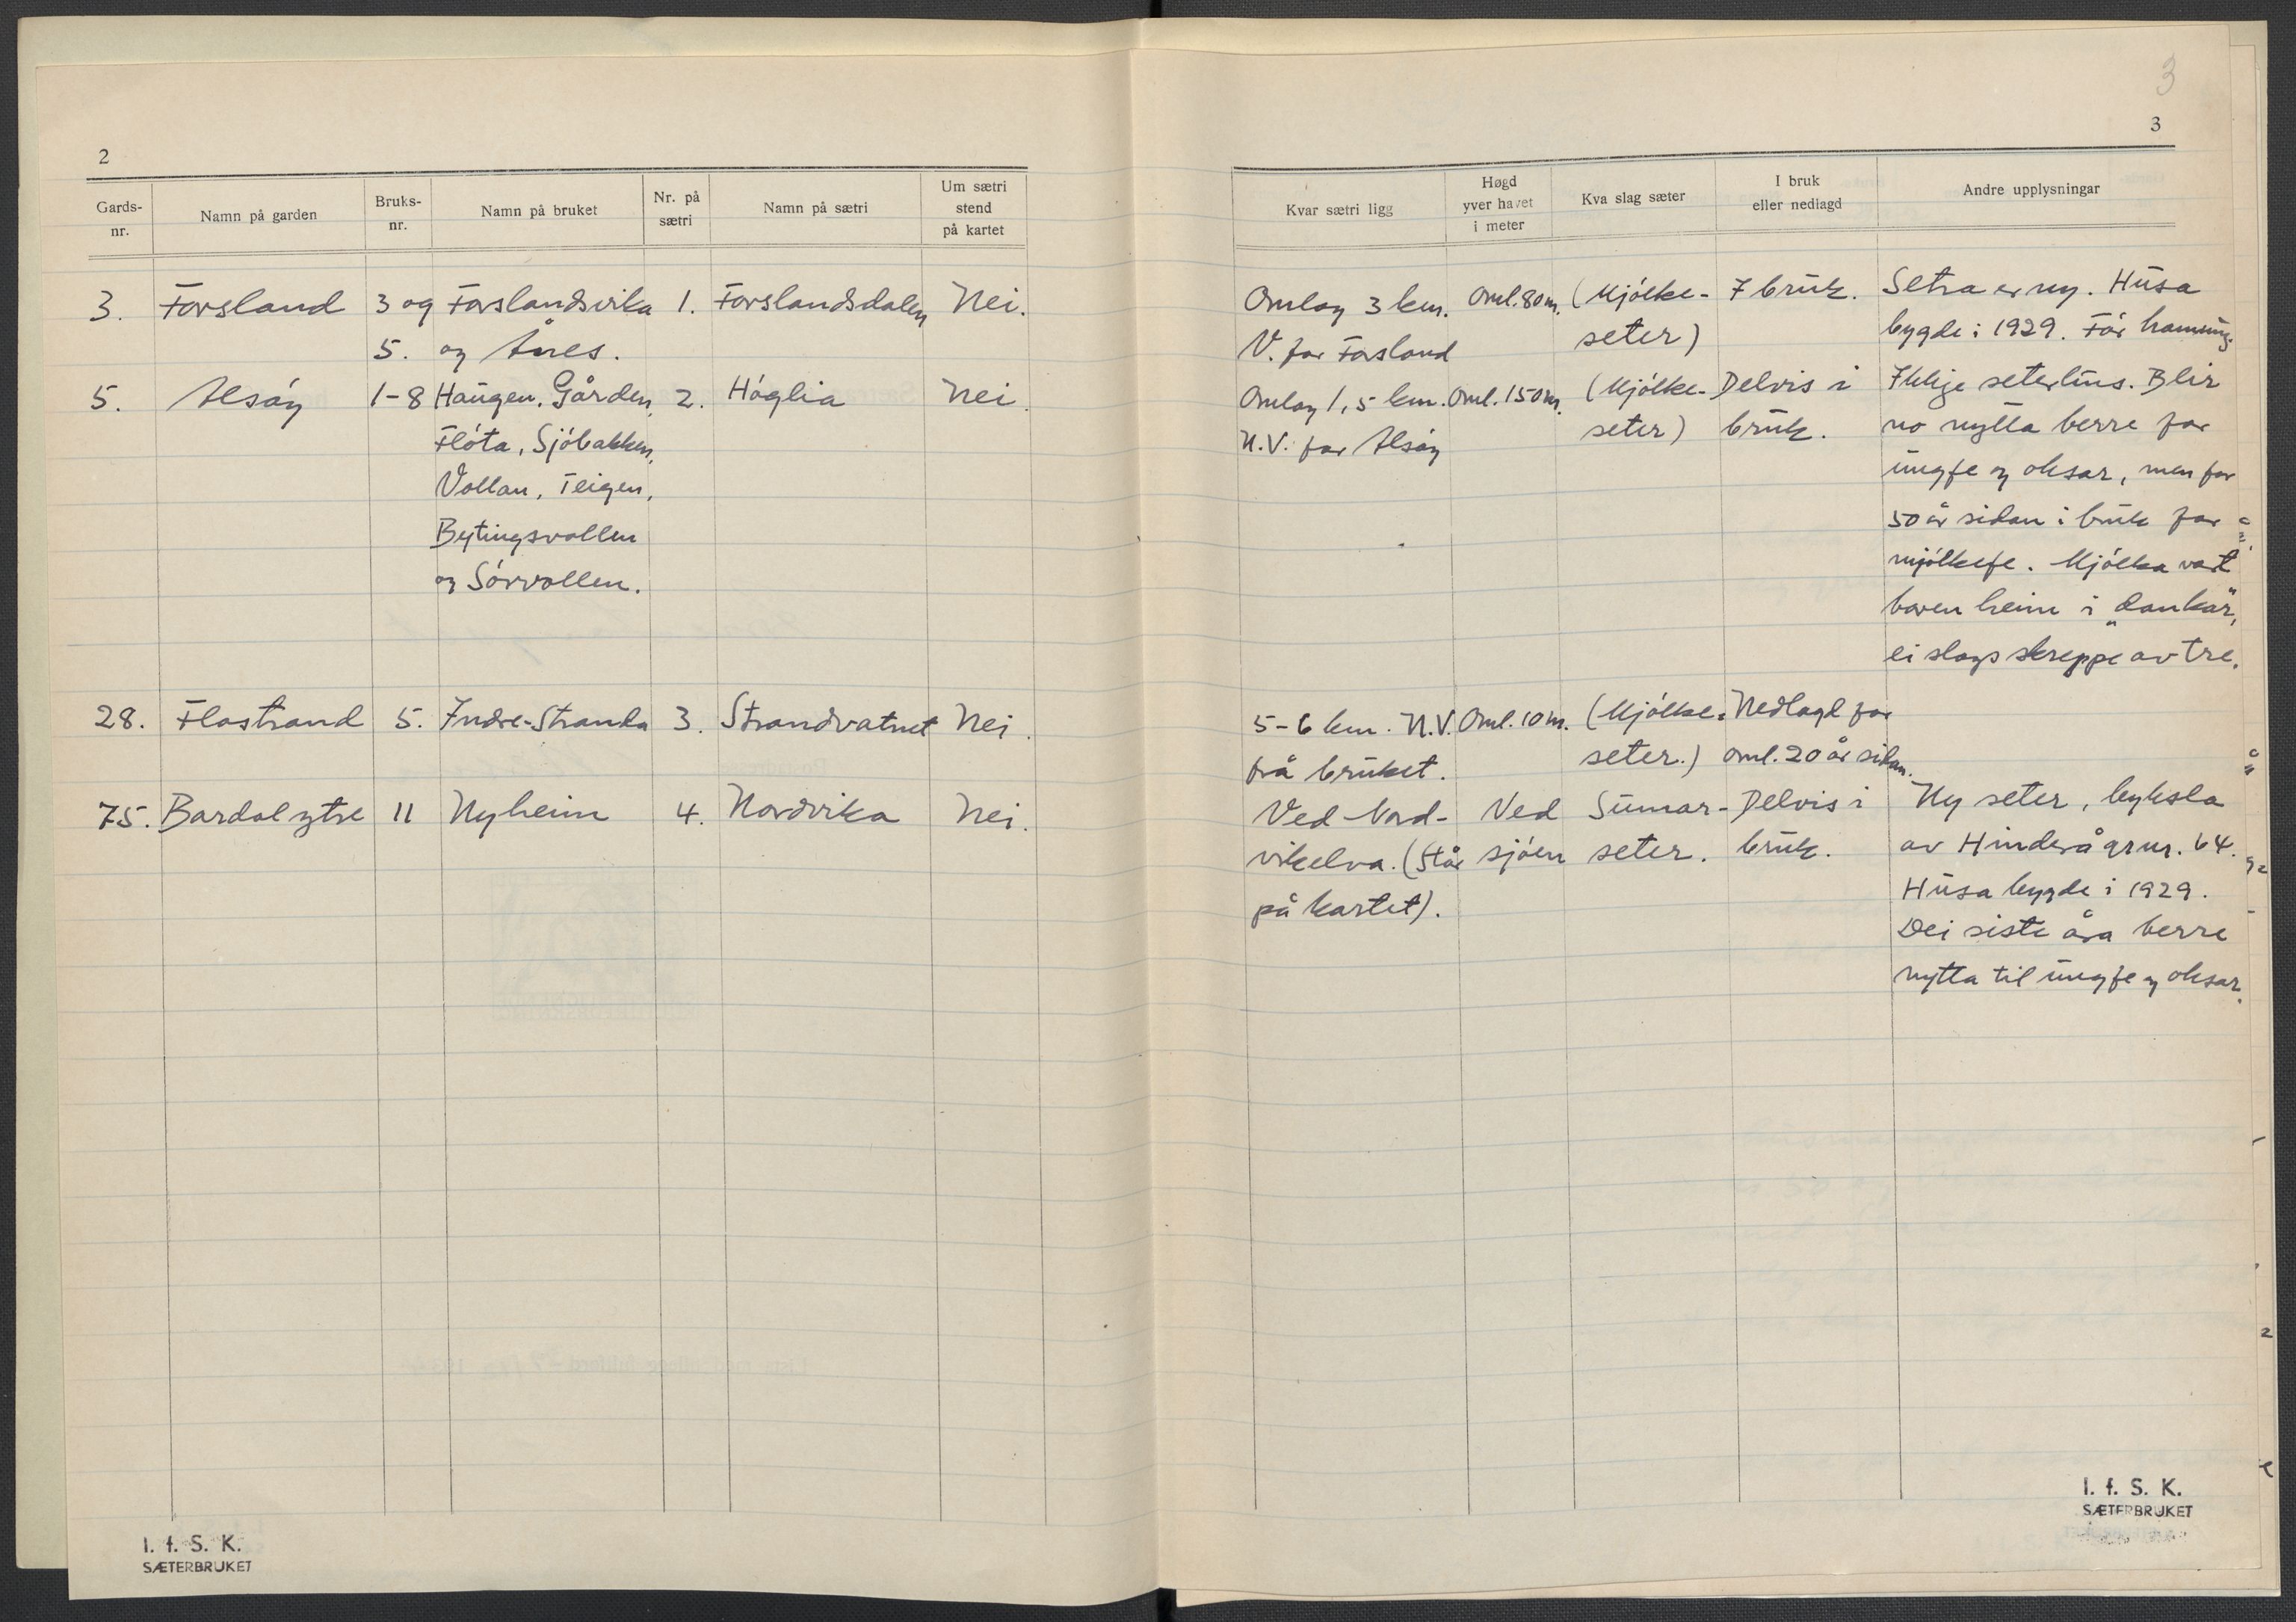 2
Gards-nr. Namn på garden Bruks-nr. Namn på bruket Nr. på sætri Namn på sætri Um sætri stend på kartet
3. Forsland 3 og Forslandsvika 1. Forslandsdalen Nei.
5. og Ånes.
5. Alsøy 1-8 Haugen, Gården, 2. Høglia Nei.
Fløta, Sjøbakken,
Vollan, Teigen,
Bytingsvollen
og Sørvollen.
28. Flostrand 5. Indre-Stranda 3. Strandvatnet Nei.
75. Bardal ytre 11 Nyheim 4. Nordvika Nei.
I. f. S. K.
SÆTERBRUKET
3
3
Kvar sætri ligg Høgd yver havet i meter Kva slag sæter I bruk eller nedlagd Andre upplysningar
Omlag 3 km. Oml. 80 m. (Mjølke- I bruk. Setra er ny. Husa
V. for Forsland seter) bygde i 1929. Før hamning.
Omlag 1,5 km. Oml. 150 m. (Mjølke- Delvis i Ikkje seterhus. Blir
N.V. for Alsøy seter) bruk. no nytta berre for
ungfe og oksar, men for
50 år sidan i bruk for
mjølkefe. Mjølka vart
boren heim i "dankar",
ei slags skreppe av tre.
5-6 km. N.V. Oml. 10 m. (Mjølke- Nedlagd for
frå bruket. seter.) oml. 20 år sidan.
Ved Nord- Ved Sumar- Delvis i Ny seter, byksla
vikelva. (Står sjøen seter. bruk. av Hinderå grnr. 64.
på kartet). Husa bygde i 1929.
Dei siste åra berre
nytta til ungfe og oksar.
I. f. S. K.
SÆTERBRUKET